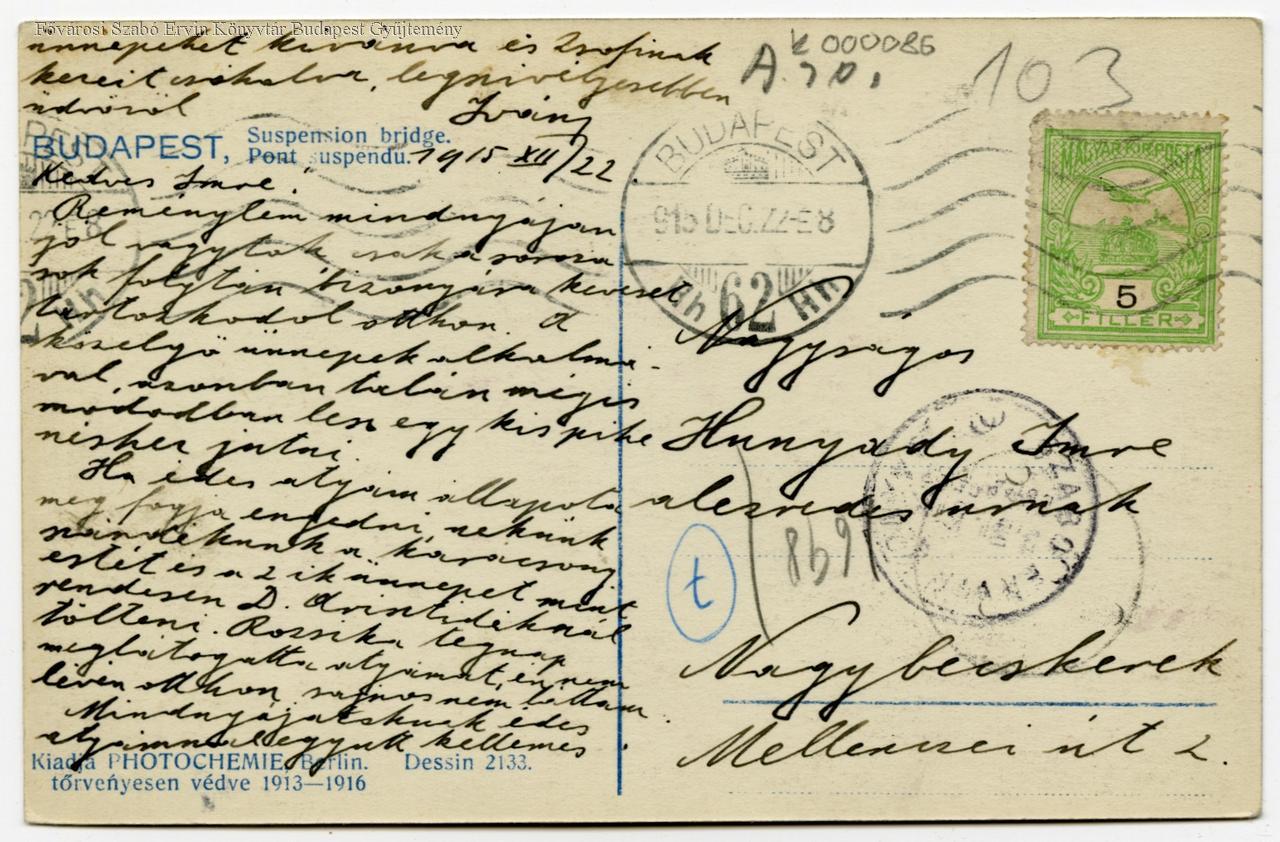 Fővárosi Szabó Ervin Könyvtár Budapest Gyűjtemény
ünnepeket kivánva és Zsofinak
kezeit csókolva, legszivélyesebben
üdvözöl Iván
k 000086
A. 70.
103
BUDAPEST, Suspension bridge.
Pont suspendu.
1915 XII/22
BUDAPEST
915 DEC. 22-E8
62
MAGYAR KIR. POSTA
5
FILLÉR
Kedves Imre!
Reménylem mindnyájan
jól vagytok csak a soroza
sok folytán bizonyára keveset
tartozkodol otthon. A
közelgő ünnepek alkalmá-
val, azonban talán mégis
módodban lesz egy kis pihe
néshez jutni.
Ha édes atyám állapota
meg fogja engedni, nekünk
szándékunk a karácsony
estét és a 2ik ünnepet mint
rendesen D. töl­teni. Rozsika tegnap
meglátogatta atyámat, én nem
lévén otthon, sajnos nem láttam.
Mindnyájatoknak édes
atyámmal együtt kellemes
Nagyságos
Hunyady Imre
alezredes urnak
Nagybecskerek
Mellencei út 2.
t
698
Kiadja PHOTOCHEMIE, Berlin. Dessin 2133.
törvényesen védve 1913—1916